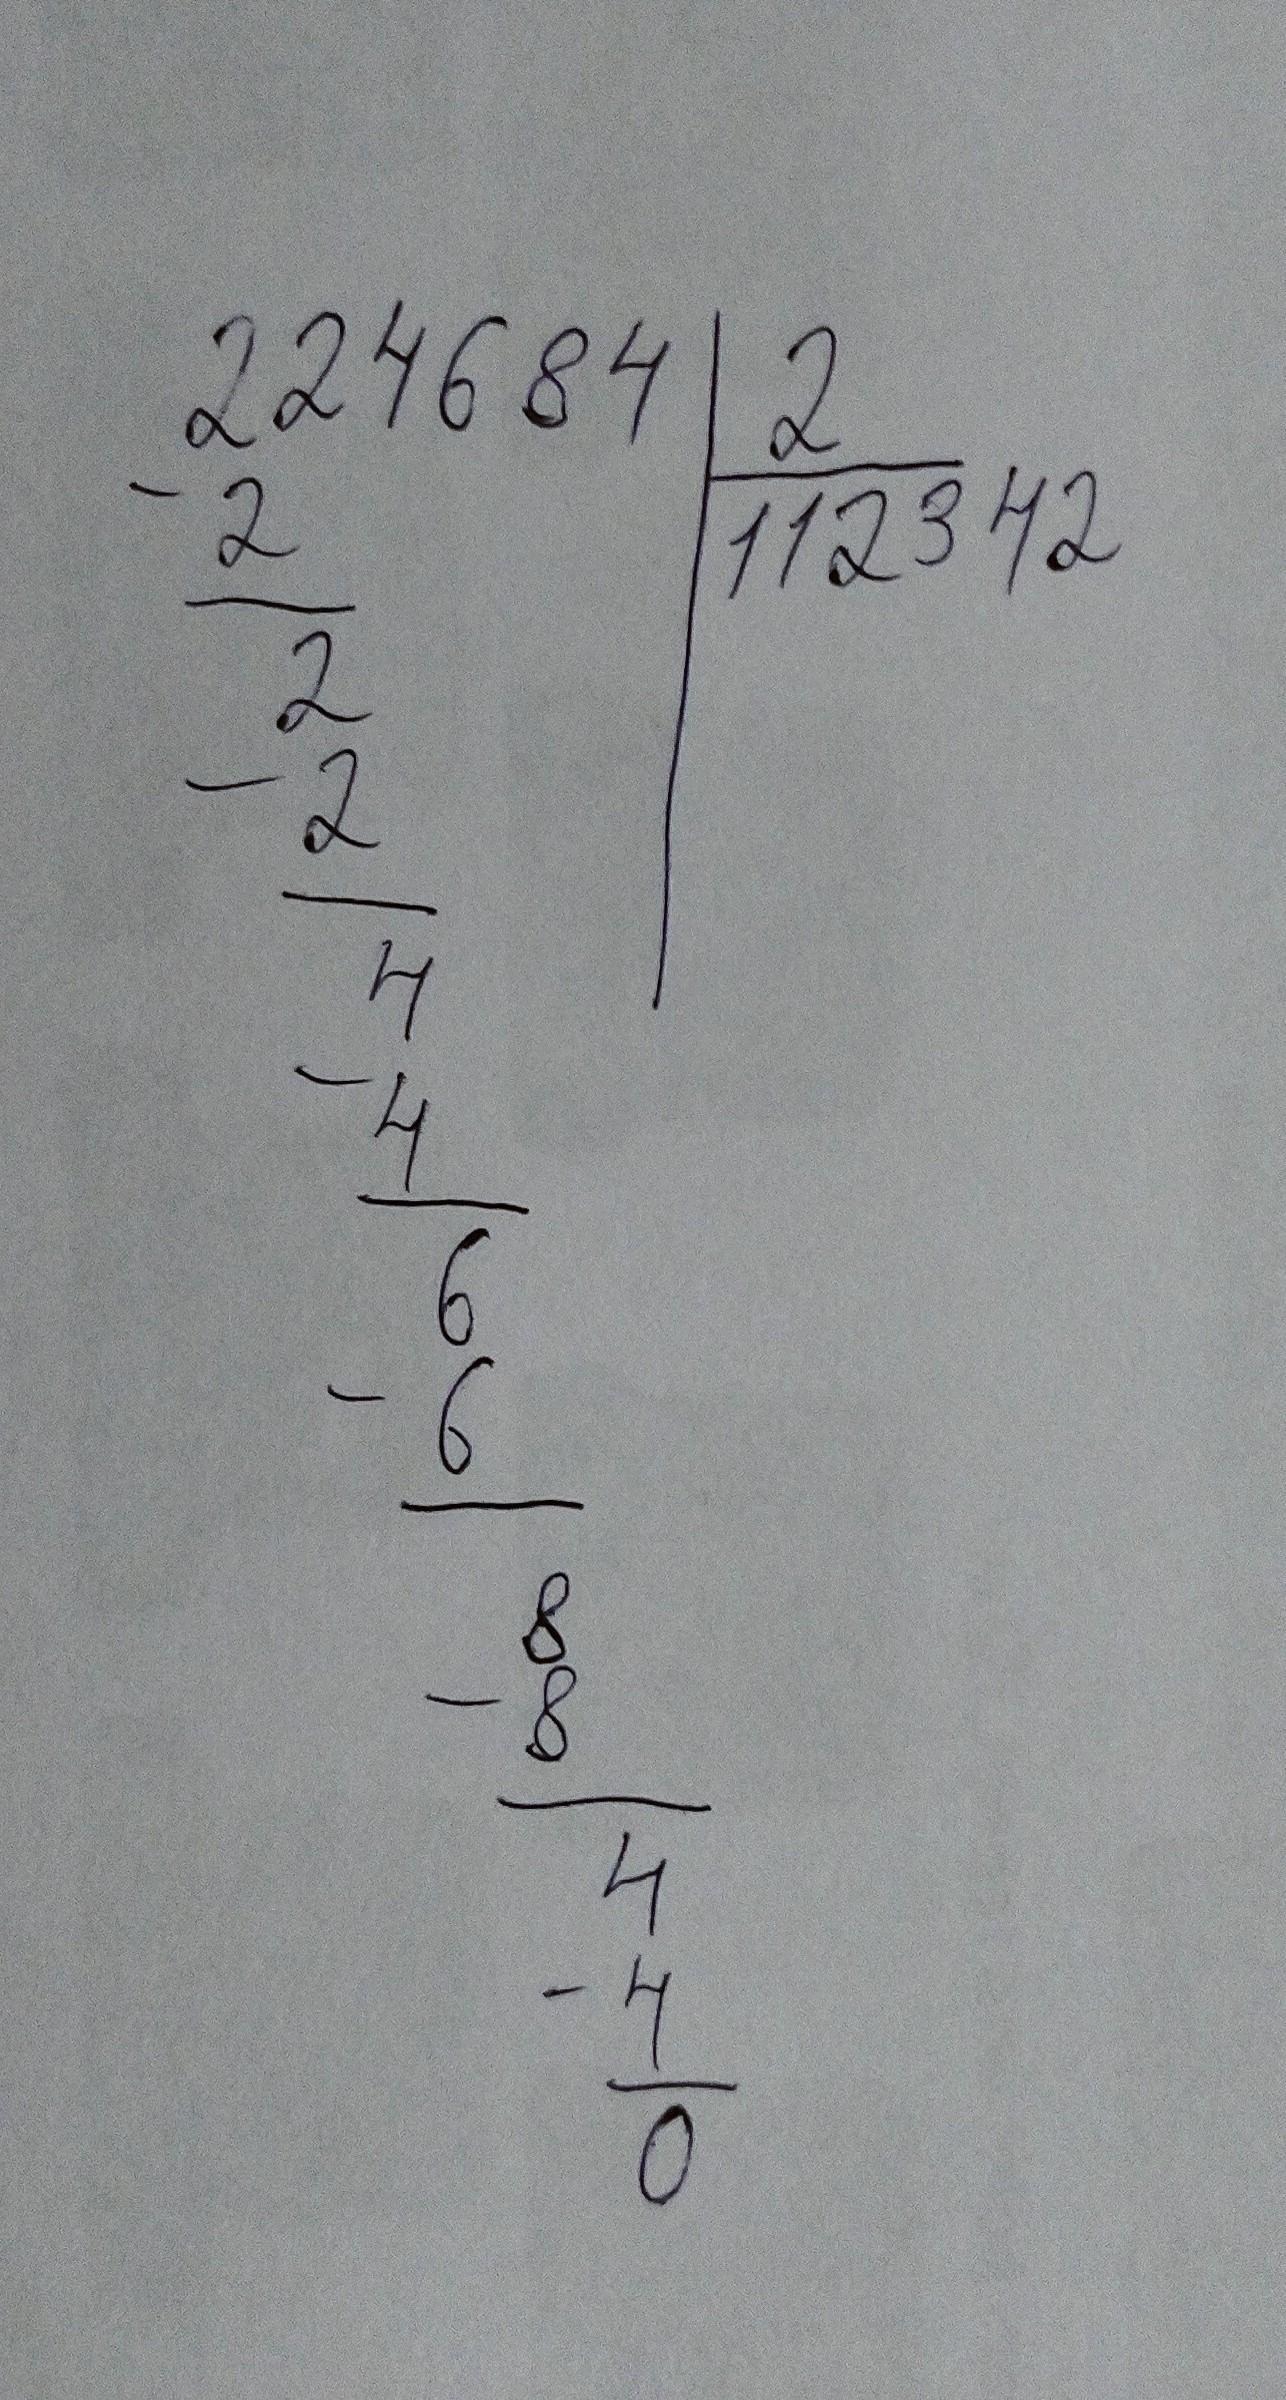 224684 2
- 2 112342
2
- 2
4
- 4
6
- 6
8
- 8
4
- 4
0